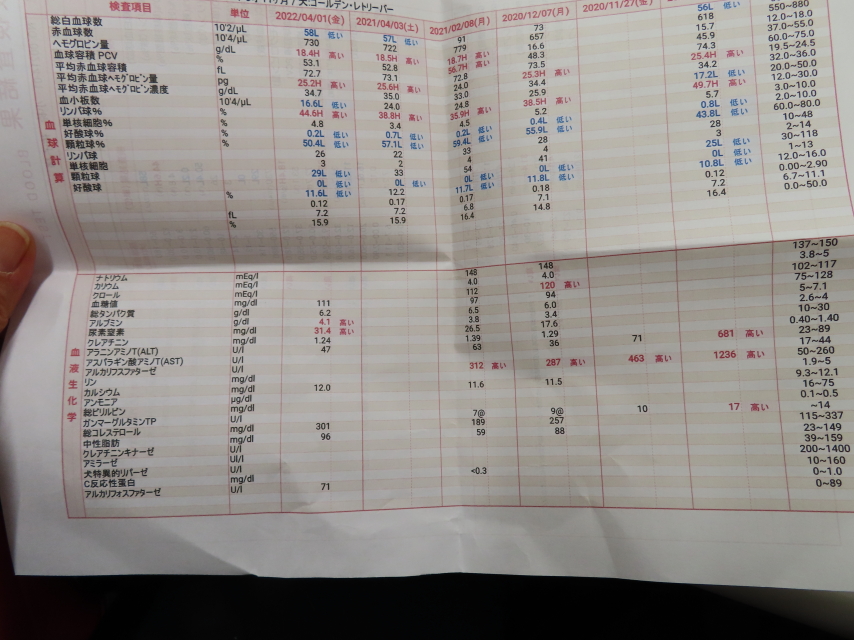 ヶ月 / 犬:ゴールデン・レトリーバー
検査項目 単位 2022/04/01(金) 2021/04/03(土) 2021/02/08(月) 2020/12/07(月) 2020/11/27(金)
総白血球数 10'2/μL 58L 低い 57L 低い 91 73 56L 低い 550~880
赤血球数 10'4/μL 730 722 779 657 618 12.0~18.0
ヘモグロビン量 g/dL 18.4H 高い 18.5H 高い 18.7H 高い 16.6 15.7 37.0~55.0
血球容積 PCV % 53.1 52.8 56.7H 高い 48.3 45.9 60.0~75.0
平均赤血球容積 fL 72.7 73.1 72.8 73.5 74.3 19.5~24.5
平均赤血球ヘモグロビン量 pg 25.2H 高い 25.6H 高い 24.0 25.3H 高い 25.4H 高い 32.0~36.0
平均赤血球ヘモグロビン濃度 g/dL 34.7 35.0 33.0 34.4 34.2 20.0~50.0
血小板数 10'4/μL 16.6L 低い 24.0 24.8 25.9 17.2L 低い 12.0~30.0
リンパ球% % 44.6H 高い 38.8H 高い 35.9H 高い 38.5H 高い 49.7H 高い 3.0~10.0
単核細胞% % 4.8 3.4 4.5 5.2 5.7 2.0~10.0
好酸球% % 0.2L 低い 0.7L 低い 0.2L 低い 0.4L 低い 0.8L 低い 60.0~80.0
顆粒球% % 50.4L 低い 57.1L 低い 59.4L 低い 55.9L 低い 43.8L 低い 10~48
リンパ球 26 22 33 28 28 2~14
単核細胞 3 2 4 4 3 30~118
顆粒球 29L 低い 33 54 41 25L 低い 1~13
好酸球 0L 低い 0L 低い 0L 低い 0L 低い 12.0~16.0
% 11.6L 低い 12.2 11.7L 低い 11.8L 低い 10.8L 低い 0.00~2.90
0.12 0.17 0.17 0.18 0.12 6.7~11.1
fL 7.2 7.2 6.8 7.1 7.2 0.0~50.0
% 15.9 15.9 16.4 14.8 16.4
血球計算
ナトリウム mEq/l 148 148 137~150
カリウム mEq/l 4.0 4.0 3.8~5
クロール mEq/l 112 120 高い 102~117
血糖値 mg/dl 111 97 94 75~128
総タンパク質 g/dl 6.2 6.5 6.0 5~7.1
アルブミン g/dl 4.1 高い 3.8 3.4 2.6~4
尿素窒素 mg/dl 31.4 高い 26.5 17.6 10~30
クレアチニン mg/dl 1.24 1.39 1.29 0.40~1.40
アラニンアミノT(ALT) U/l 47 63 36 71 681 高い 23~89
アスパラギン酸アミノT(AST) U/l 17~44
アルカリフスファターゼ U/l 312 高い 287 高い 463 高い 1236 高い 50~260
リン mg/dl 1.9~5
カルシウム mg/dl 12.0 11.6 11.5 9.3~12.1
アンモニア μg/dl 16~75
総ビリルビン mg/dl 0.1~0.5
ガンマーグルタミンTP U/l 7@ 9@ 10 17 高い ~14
総コレステロール mg/dl 301 189 257 115~337
中性脂肪 mg/dl 96 59 88 23~149
クレアチニンキナーゼ U/l 39~159
アミラーゼ U/l 200~1400
犬特異的リパーゼ U/l 10~160
C反応性蛋白 mg/dl <0.3 0~1.0
アルカリフォスファターゼ U/l 71 0~89
血液生化学